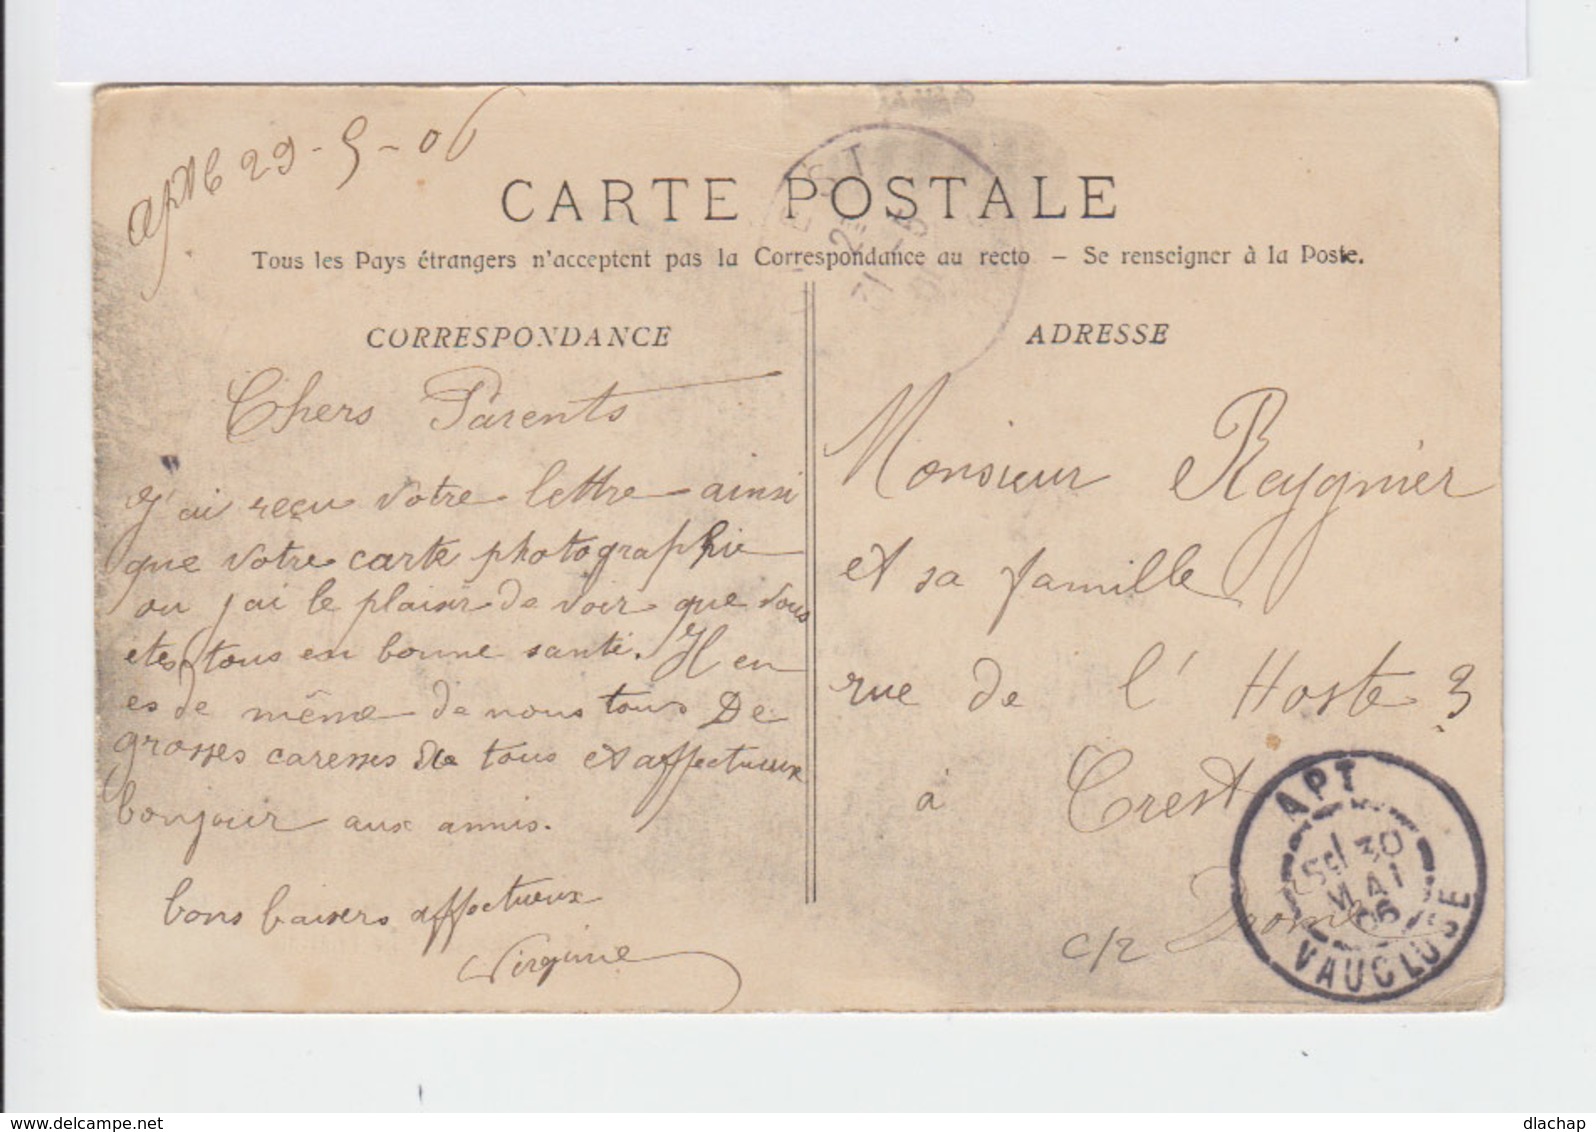 Apt le 29-5-06
CARTE POSTALE
Tous les Pays étrangers n'acceptent pas la Correspondance au recto — Se renseigner à la Poste.
CORRESPONDANCE
Chers Parents
J'ai reçu votre lettre ainsi
que votre carte photographie
ou j'ai le plaisir de voir que vous
etes tous en bonne santé. Il en
es de même de nous tous De
grosses caresses de tous et affectueux
bonjour aux amis.
bons baisers affectueux
Virginie
ADRESSE
Monsieur Reygnier
et sa famille
rue de l'Hoste 3
à Crest
Drome
APT
30
MAI
06
VAUCLUSE
www.delcampe.net
dlachap